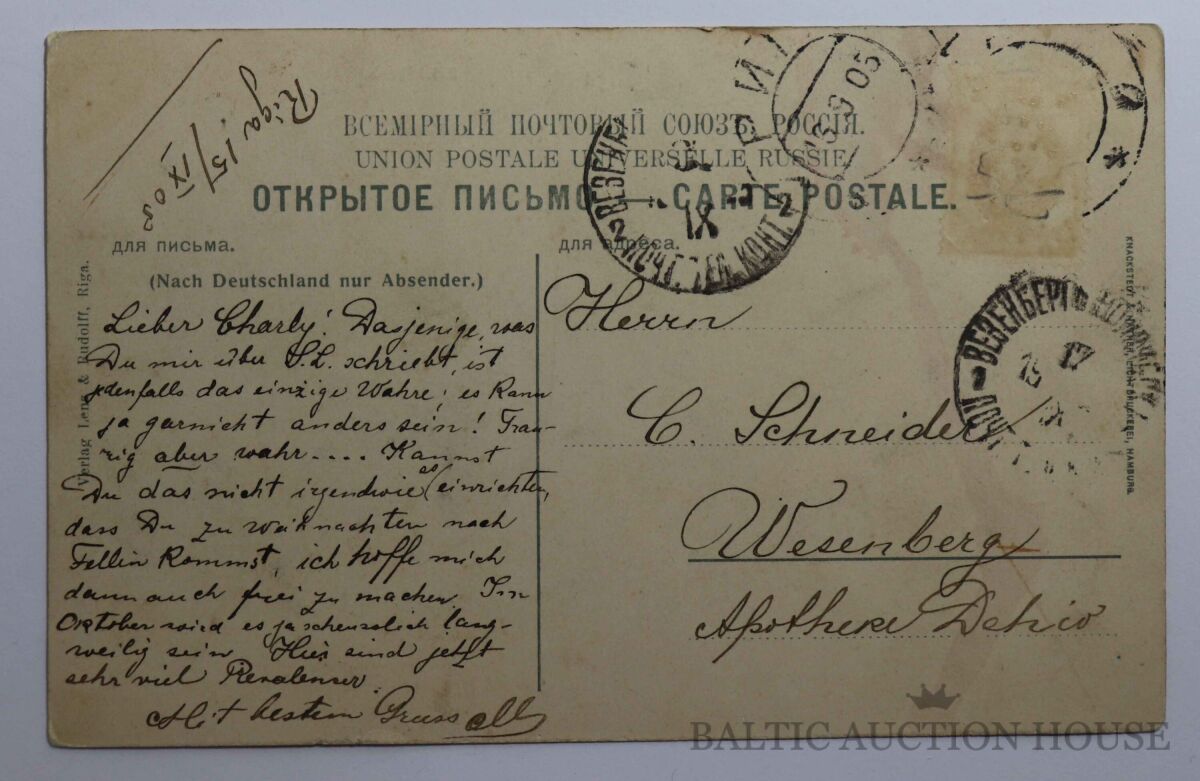 Riga 15/IX 03
ВСЕМІРНЫЙ ПОЧТОВЫЙ СОЮЗЪ. РОССІЯ.
UNION POSTALE UNIVERSELLE RUSSIE
ОТКРЫТОЕ ПИСЬМО — CARTE POSTALE.
для письма.
для адреса.
(Nach Deutschland nur Absender.)
Lieber Charly! Dasjenige, was
Du mir über S. L. schriebt, ist
jedenfalls das einzige Wahre; es kann
ja garnicht anders sein! Trau-
rig aber wahr.... Kannst
Du das nicht irgendwie es einrichten,
dass Du zu Weihnachten nach
Fellin kommst, ich hoffe mich
dann auch frei zu machen. Im
Oktober wird es ja scheusslich lang-
weilig sein. Hier sind jetzt
sehr viel Revalenser.
Mit bestem Gruss
Herrn
C. Schneider
Wesenberg
Apotheke Dehio
Verlag Lenz & Rudolff, Riga.
KNACKSTEDT & NÄTHER, LICHTDRUCKEREI, HAMBURG.
РИГ
ВЕЗЕНБ
IX
2 ПОЧТ. ТЕЛ. КОНТ. 2
ВЕЗЕНБЕРГ
17
BALTIC AUCTION HOUSE